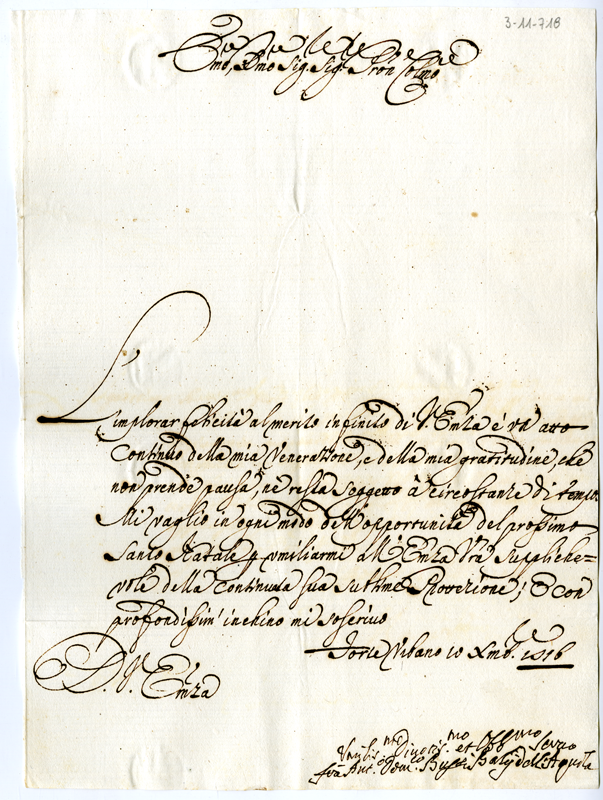 3-11-718
Emo, e Rmo Sig.r Sig.r Pron Colmo
L'implorar felicità al merito infinito di V. Emza é un atto
Continuo della mia Venerazione, e della mia gratitudine, che
non prende pausa, né resta soggetto à circostanze di tempo.
Mi vaglio in ogni modo dell'opportunità del prossimo
Santo Natale p umiliarmi all'Emza Vra suppliche=
vole della Continuata sua sublime Protezione; E con
profondissim' inchino mi soscrivo
D. V. Emza
Forte Urbano 10 Xmb.e 1716
Umilis.mo Divotis.mo et Obb.mo Servo
frà Ant.o Dom.o Bussi Balÿ